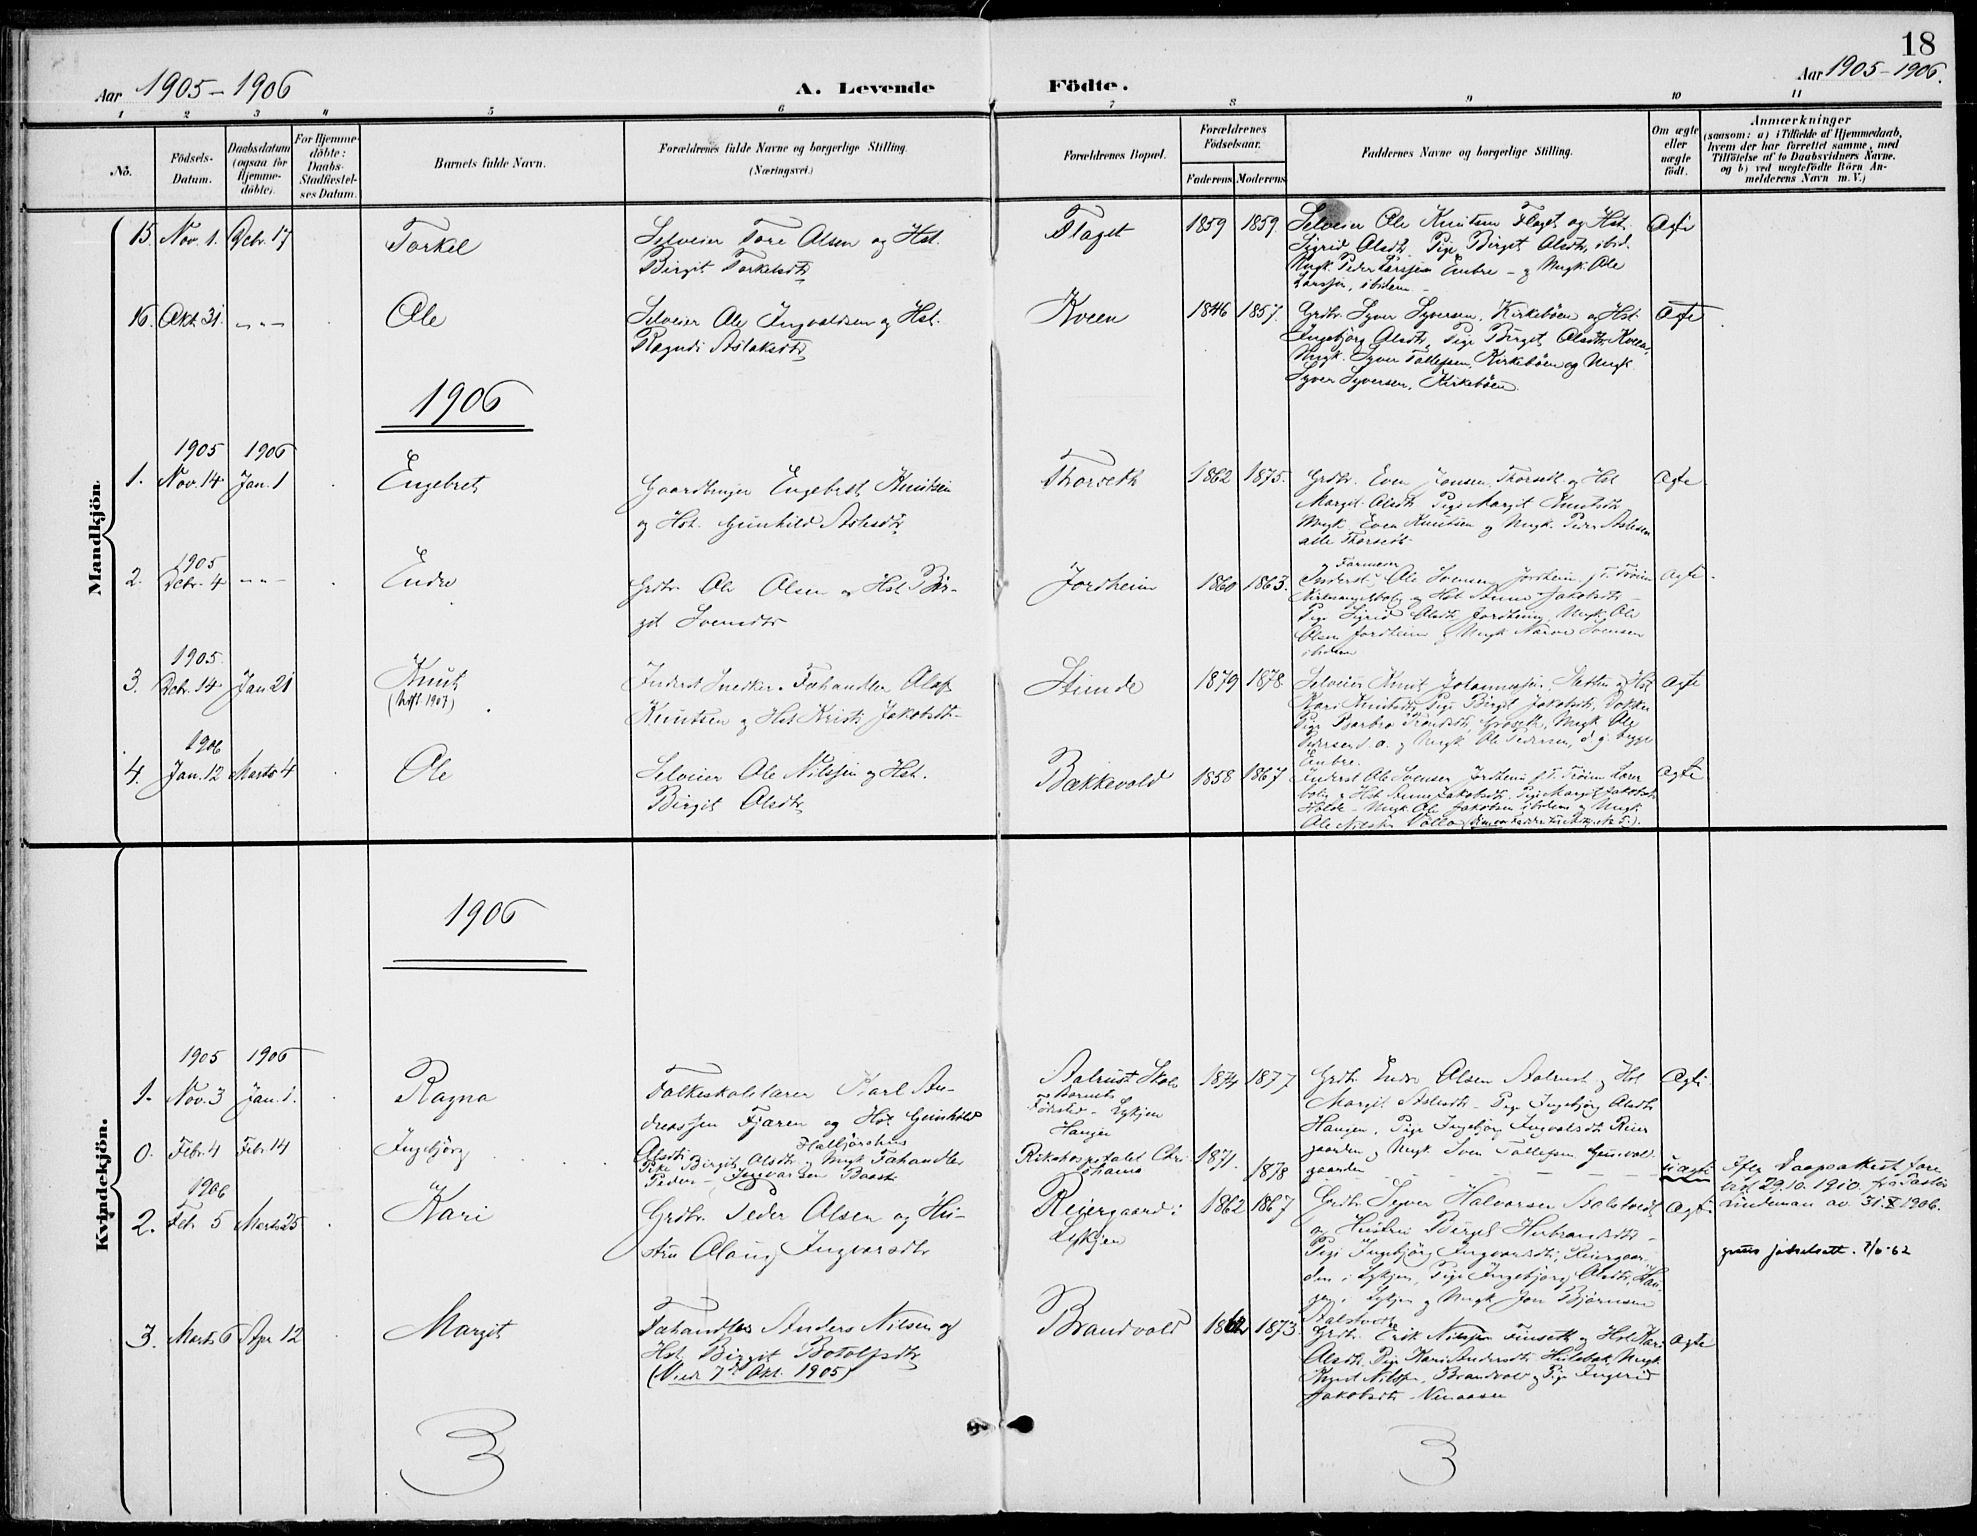 18
Aar 1905-1906
A. Levende
Födte.
Aar 1905-1906.
1 2 3 4 5 6 7 8 9 10 11
No.
Födsels-
Datum.
Daabsdatum
(ogsaa for
Hjemme-
döbte).
For Hjemme-
döbte:
Daabs-
Stadfæstel-
ses Datum.
Barnets fulde Navn.
Forældrenes fulde Navne og borgerlige Stilling.
(Næringsvei.)
Forældrenes Bopæl.
Forældrenes
Födselsaar.
Faderens Moderens
Faddernes Navne og borgerlige Stilling.
Om ægte
eller
uægte
födt.
Anmærkninger
(saasom: a) i Tilfælde af Hjemmedaab,
hvem der har forrettet samme, med
Tilföielse af to Daabsvidners Navne.
og b) ved uægtefödte Börn An-
melderens Navn m. V.)
Mandkjön.
15. Nov. 1. Dcbr. 17
Torkel
Selveier Tore Olsen og Hst.
Birgit Torkelsdtr
Flaget
1859 1859.
Selveier Ole Knutsen Flaget og Hst.
Sigrid Olsdtr, Pige Birgit Olsdtr, ibid.
Ungk. Peder Larssen Enbre - og Ungk. Ole
Larssen, ibidem -
Ægte
16. Okt. 31. -"-
Ole
Selveier Ole Ingvaldsen og Hst.
Ragndi Aslaksdtr
Kveen
1846 1857.
Grdbr. Syver Syversen, Kirkebøen og Hst.
Ingebjørg Olsdtr, Pige Birgit Olsdtr Kveen,
Ungk. Syver Tollefsen, Kirkebøen og Ungk.
Syver Syversen, Kirkebøen.
Ægte
1906
1905 1906
1. Nov. 14 Jan. 1
Engebret
Gaardbruger Engebret Knutsen
og Hst. Gunhild Aslesdtr
Thorseth
1862 1875.
Grdbr. Even Jonsen Thorseth og Hst
Margit Olsdtr Pige Margit Knutsdtr
Ungk. Even Knutsen og Ungk. Peder Aslesen
alle Thorseth
Ægte
1905
2. Dcbr. 4 -"-
Endre
Grdbr. Ole Olsen og Hst. Bir-
git Svensdtr
Jordheim
1860 1863.
Inderst Ole Svensen Jordheim
og Hst Anne Jakobsdtr -
Pige Sigrid Olsdtr Jordheim, Ungk. Ole
Olsen Jordheim og Ungk Svensen
ibidem
Ægte
1905.
3. Dcbr. 14 Jan 21
Knut
Inderst Snedker, Fæhandler Olaf
Knutsen og Hst. Kristi Jakobsdtr
Stunde
1879 1878.
Selveier Knut Johannessen, og Hst
Kari Knutsdtr, Pige Birgit Jakobsdtr,
Pige Barbro Trondsdtr, Ungk Ole
Pedersen d. æ. og Ungk Ole Pedersen, d. y. begge
Enbre.
Ægte
1906
4. Jan. 12 Marts 4
Ole
Selveier Ole Nilssen og Hst.
Birgit Olsdtr
Bækkevold
1858 1867
Inderst Ole Svensen Jordheim
og Hst Anne Jakobsdtr, Pige Margit Jakobsdtr
Ungk. Ole Jakobsen ibidem og Ungk
Ole Nilssen
Ægte
Kvindekjön.
1906
1905 1906
1. Nov. 3 Jan. 1.
Ragna
Folkeskolelærer Karl An-
dreassen Fjæren og Hst. Gunhild
Olsdtr
Aalrust Skole
Barnets
Fødested - Lykjen
Haugen
1874 1877
Grdbr. Endre Olsen Aalrust og Hst
Margit Aslesdtr - Pige Ingebjørg Olsdtr
Haugen, Pige Ingebjørg Ingvaldsdtr Reier
gaarden og Ungk. Sven Tollefsen
gaarden
Ægte
0. Febr. 4 Febr. 14
Ingebjørg
Pike Birgit Olsdtr og Ungk. Fæhandler
Peder Ingvarsen
Rikshospitalet Chri
stiania
1871. 1878
uægte
Efter Daapsattest fore
lagt 29.10.1910. fra Pastor
Lindeman av 31.X.1906.
1906
2. Febr. 5 Marts 25
Kari
Grdbr. Peder Olsen og Hu-
stru Olaug Ingvarsdtr
Reiergaard i
Lykjen
1862 1867
Grdbr. Syver Halvorsen
og Hustru Birgit Herbrandsdtr -
Pige Ingebjørg Ingvarsdtr, Reiergaar-
den i Lykjen, Pige Ingebjørg Olsdtr, Hau-
gen i Lykjen og Ungk Jon Bjørnsen
Ægte
3. Marts 6 Apr. 12
Margit
Fæhandler Anders Nilsen og
Hst. Birgit Botolfsdtr
(Viet 7de Okt. 1905)
Brandvold
1873.
Grdbr. Erik Nilssen Finseth og Hst Kari
Olsdtr, Pige Kari Andersdtr Ungk.
Knut Nilsen, Brandvold og Pige Ingerid
Jakobsdtr
Ægte
3
3